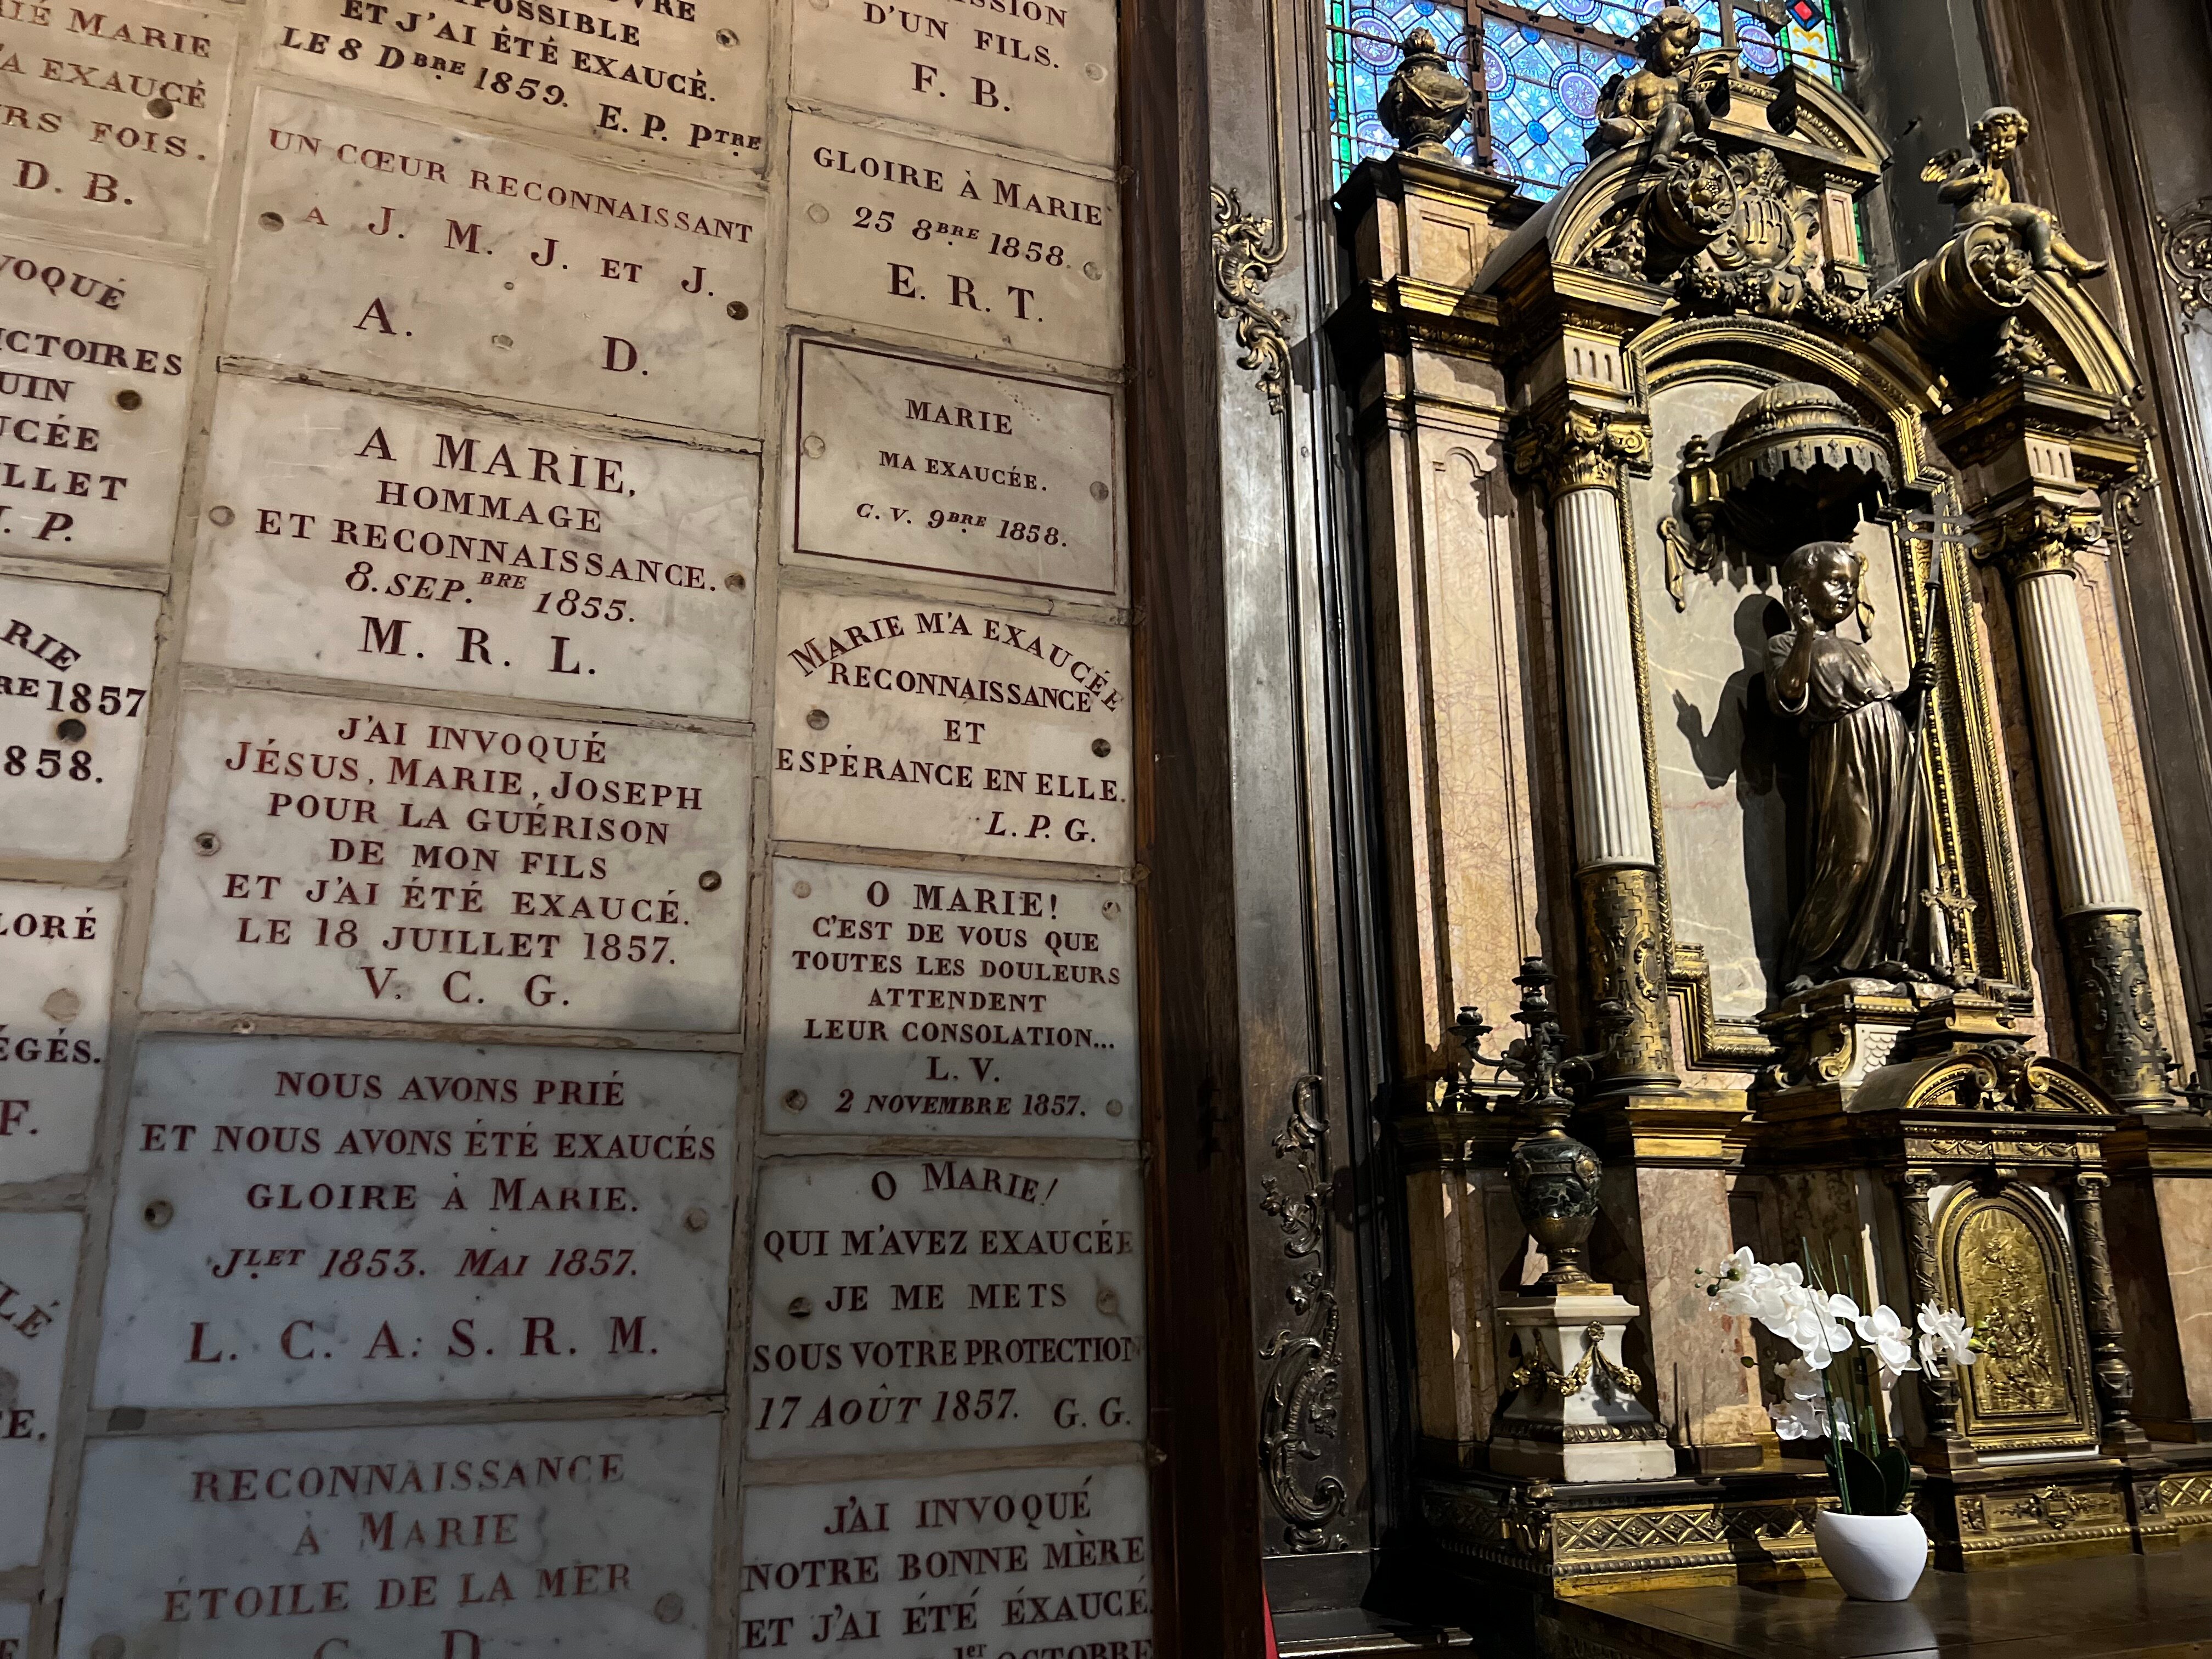 MARIE
A EXAUCÉ
FOIS.
D. B.
VOQUÉ
UIN
LLET
P.
1857
1858.
F.
E.
IMPOSSIBLE
ET J'AI ÉTÉ EXAUCÉ.
LE 8 DBRE 1859.
E. P. PTRE
UN CŒUR RECONNAISSANT
A J. M. J. ET J.
A. D.
A MARIE,
HOMMAGE
ET RECONNAISSANCE.
8. SEP.BRE 1855.
M. R. L.
J'AI INVOQUÉ
JÉSUS, MARIE, JOSEPH
POUR LA GUÉRISON
DE MON FILS
ET J'AI ÉTÉ EXAUCÉ.
LE 18 JUILLET 1857.
V. C. G.
NOUS AVONS PRIÉ
ET NOUS AVONS ÉTÉ EXAUCÉS
GLOIRE À MARIE.
JLET 1853. MAI 1857.
L. C. A: S. R. M.
RECONNAISSANCE
À MARIE
ÉTOILE DE LA MER
D'UN FILS.
F. B.
GLOIRE À MARIE
25 8BRE 1858.
E. R. T.
MARIE
MA EXAUCÉE.
C. V. 9BRE 1858.
MARIE M'A EXAUCÉE
RECONNAISSANCE
ET
ESPÉRANCE EN ELLE.
L. P. G.
O MARIE!
C'EST DE VOUS QUE
TOUTES LES DOULEURS
ATTENDENT
LEUR CONSOLATION...
L. V.
2 NOVEMBRE 1857.
O MARIE!
QUI M'AVEZ EXAUCÉE
JE ME METS
SOUS VOTRE PROTECTION
17 AOÛT 1857. G. G.
J'AI INVOQUÉ
NOTRE BONNE MÈRE
ET J'AI ÉTÉ ÉXAUCÉ
1er OCTOBRE